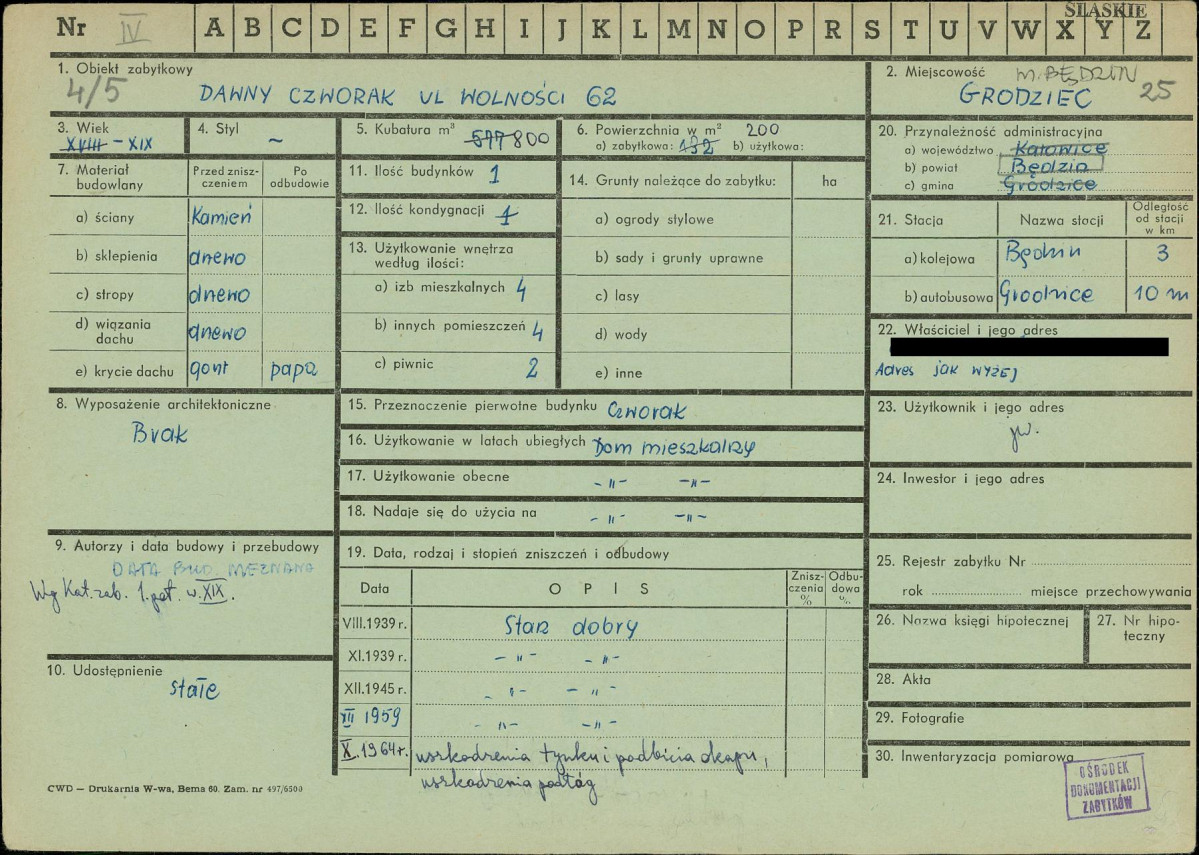 Nr IV A B C D E F G H I J K L M N O P R S T U V W X Y Z
ŚLĄSKIE
1. Obiekt zabytkowy
4/5 DAWNY CZWORAK UL WOLNOŚCI 62
2. Miejscowość M. BĘDZIN
GRODZIEC 25
3. Wiek
XVIII – XIX
4. Styl
~
5. Kubatura m³
577 800
6. Powierzchnia w m² 200
a) zabytkowa: 132 b) użytkowa:
7. Materiał budowlany
Przed zniszczeniem
Po odbudowie
a) ściany Kamień
b) sklepienia drzewo
c) stropy drzewo
d) wiązania dachu drzewo
e) krycie dachu gont papa
8. Wyposażenie architektoniczne
Brak
9. Autorzy i data budowy i przebudowy
DATA BUD. NIEZNANA
Wg Kat. zab. 1. poł. w. XIX.
10. Udostępnienie
stałe
11. Ilość budynków 1
12. Ilość kondygnacji 1
13. Użytkowanie wnętrza według ilości:
a) izb mieszkalnych 4
b) innych pomieszczeń 4
c) piwnic 2
14. Grunty należące do zabytku: ha
a) ogrody stylowe
b) sady i grunty uprawne
c) lasy
d) wody
e) inne
15. Przeznaczenie pierwotne budynku Czworak
16. Użytkowanie w latach ubiegłych Dom mieszkalny
17. Użytkowanie obecne –"– –"–
18. Nadaje się do użycia na –"– –"–
19. Data, rodzaj i stopień zniszczeń i odbudowy
Data OPIS Zniszczenia % Odbudowa %
VIII.1939 r. Stan dobry
XI.1939 r. –"– –"–
XII.1945 r. –"– –"–
XII 1959 –"– –"–
X.1964 r. uszkodzenia tynku i podbicia okapu,
uszkodzenia podłóg
20. Przynależność administracyjna
a) województwo Katowice
b) powiat Będzin
c) gmina Grodziec
21. Stacja
Nazwa stacji
Odległość od stacji w km
a) kolejowa Będzin 3
b) autobusowa Grodziec 10 m
22. Właściciel i jego adres
Adres jak wyżej
23. Użytkownik i jego adres
jw.
24. Inwestor i jego adres
25. Rejestr zabytku Nr
rok miejsce przechowywania
26. Nazwa księgi hipotecznej
27. Nr hipoteczny
28. Akta
29. Fotografie
30. Inwentaryzacja pomiarowa
OŚRODEK
DOKUMENTACJI
ZABYTKÓW
CWD – Drukarnia W-wa, Bema 60. Zam. nr 497/6500